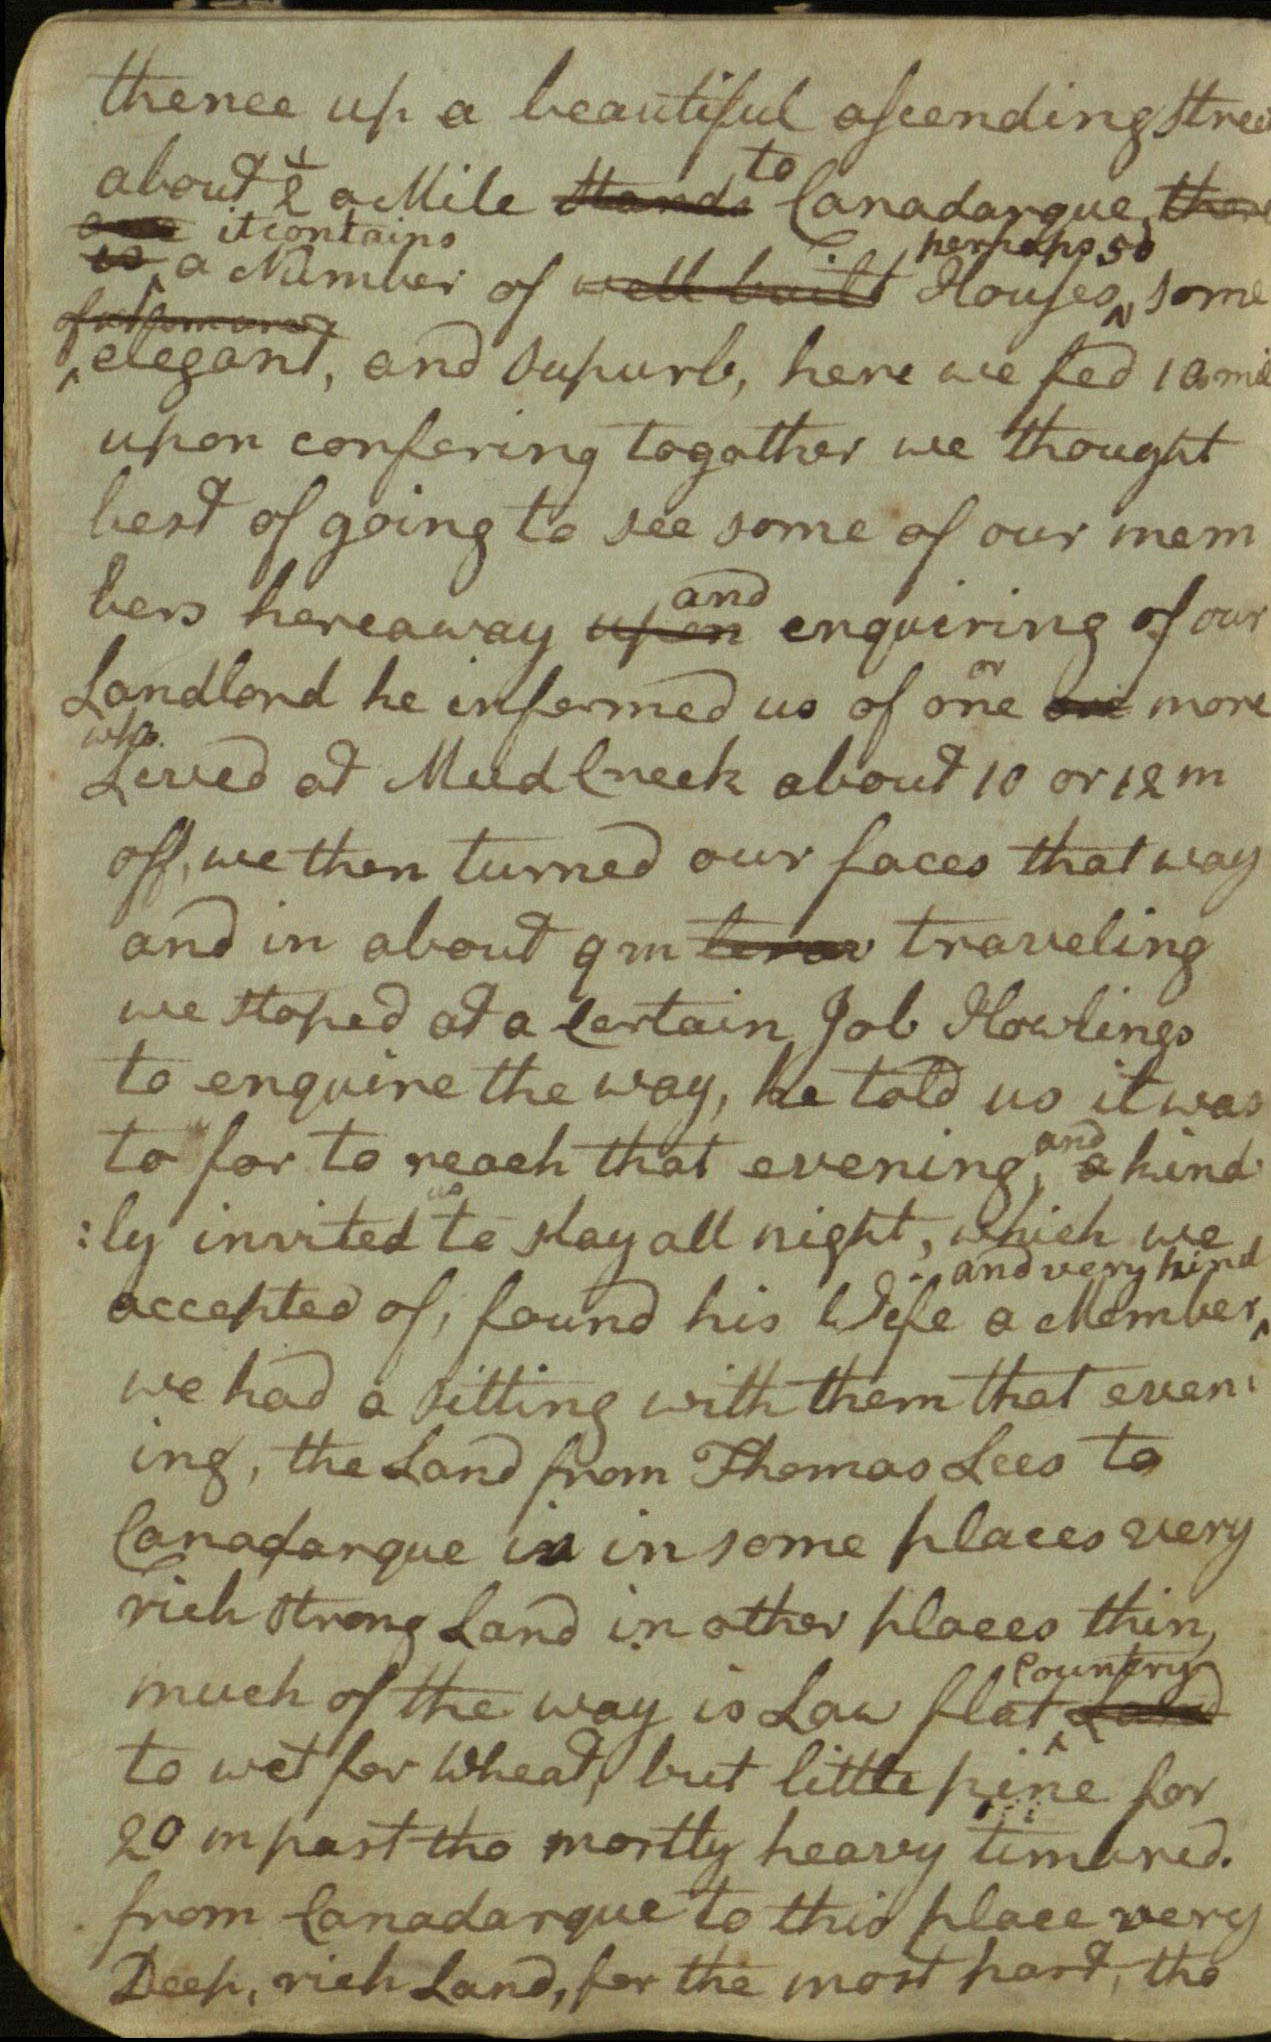 thence up a beautiful ascending stree
about ½ a Mile stands to Canadarque, there
it contains perhaps 50
is a Number of well built Houses, some
elegant, and supurb, here we fed 10 mi
upon confering togather we thought
best of going to see some of our mem
bers hereaway upon and enquiring of our
Landlord he informed us of one or more
who
Lived at Mud Creek about 10 or 12 m
off, we then turned our faces that way
and in about 9 m traveling
we stoped at a Certain Job Howlings
to enquire the way, he told us it was
to far to reach that evening, and a kind
:ly invited us to stay all night, which we
and very kind
accepted of, found his Wife a Member
we had a sitting with them that even
ing, the Land from Thomas Lees to
Canadarque is in some places very
rich strong Land in other places thin,
much of the way is Law flat Country Land
to wet for Wheat, but little pine for
20 m past tho mostly heavy timbred.
from Canadarque to this place very
Deep, rich Land, for the most part, tho